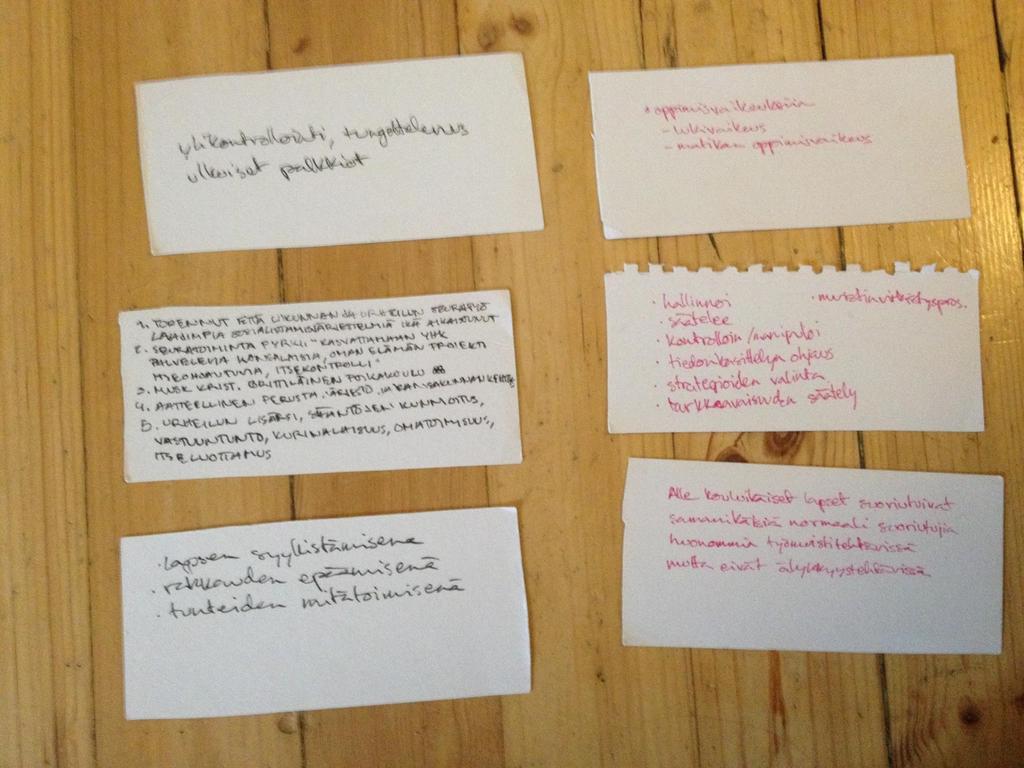 ylikontrollointi, tungettelevuus
ulkoiset palkkiot
1. TODENNUT ETTÄ LIIKUNNAN JA URHEILUN SEURATYÖ
LAAJIMPIA SOSIALISTAMISJÄRJESTELMIÄ
2. SEURATOIMINTA PYRKII "KASVATTAMAAN YHK
PALVELEVIA KANSALAISIA, OMAN ELÄMÄN PROJEKTI
ITSEOHJAUTUVIA, ITSEKONTROLLI"
3. MUSK KRIST. BRITTILÄINEN POIKAKOULU
4. AATTEELLINEN PERUSTA
5. URHEILUN LISÄKSI, SÄÄNTÖJEN KUNNIOITUS,
VASTUUNTUNTO, KURINALAISUUS, OMATOIMISUUS,
ITSELUOTTAMUS
· lapsen syyllistämisenä
· rakkauden epäämisenä
· tunteiden mitätöimisenä
* oppimisvaikeuksia
- lukivaikeus
- matikan oppimisvaikeus
· hallinnoi · muistinvirkistyspros.
· säätelee
· kontrolloin/manipuloi
· tiedonkäsittelyn ohjaus
· strategioiden valinta
· tarkkaavaisuuden säätely
Alle kouluikäiset lapset suoriutuivat
samanikäisiä normaali suoriutujia
huonommin työmuistitehtävissä
mutta eivät älykkyystehtävissä